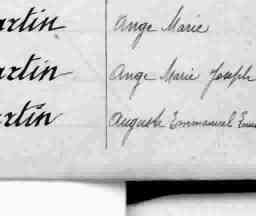 artin Ange Marie
artin Ange Marie Joseph
artin Auguste Emmanuel